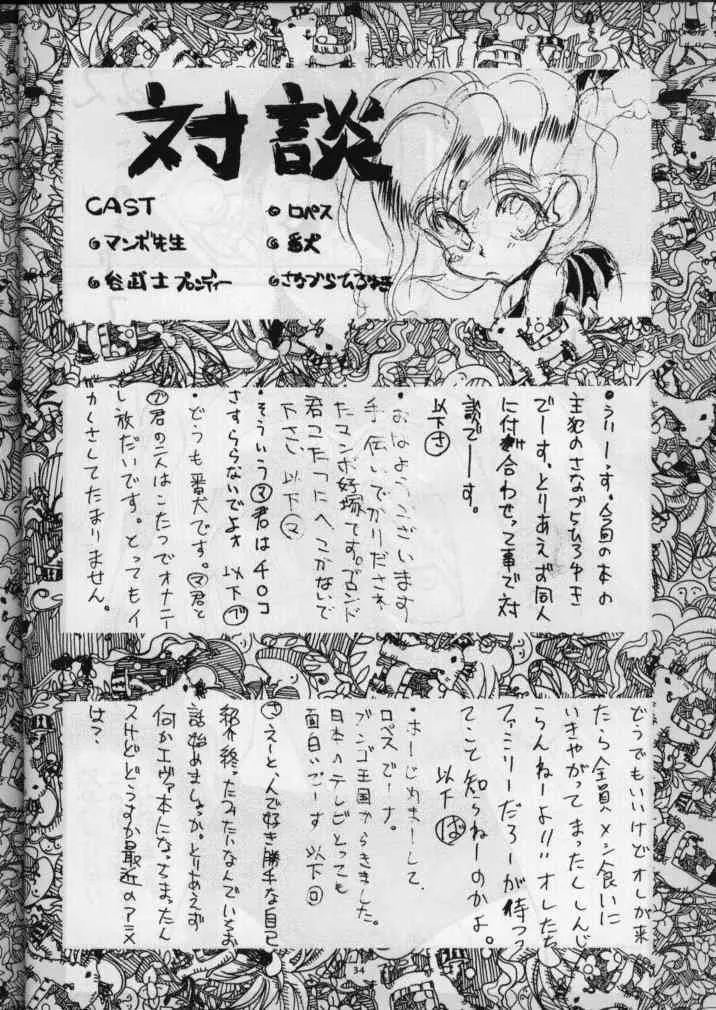 対談
CAST
マンボ先生
谷武士ブロンディー
ロペス
番犬
さなづらひろゆき
・うりーっす。今回の本の
主犯のさなづらひろゆき
でーす。とりあえず同人
に付き合わせって事で対
談でーす。
以下さ
・おはようございます
手伝いでかりだされ
たマンボ好塚です。ブロンド
君こたつにへこかないで
下さい 以下マ
・そういうマ君はチ○コ
さすらないでよォ 以下ブ
・どうも番犬です。マ君と
ブ君の二人はこたつでオナニー
し放だいです。とってもイ
カくさしてたまりません。
どうでもいいけどオレが来
たら全員メシ食いに
いきやがってまったくしんじ
らんねーよ!!! オレたち
ファミリーだろーが待つっ
てこと知らねーのかよ。
以下ば
・はーじめまーして、
ロペスでーす。
ブンゴ王国からきました。
日本のテレビとっても
面白いでーす 以下ロ
さ えーと、んで好き勝手な自己
紹介終ったみたいなんでいちお
話始めましょっか。とりあえず
何かエヴァ本になってまったん
スけどどうすか最近のアニメ
は?
34